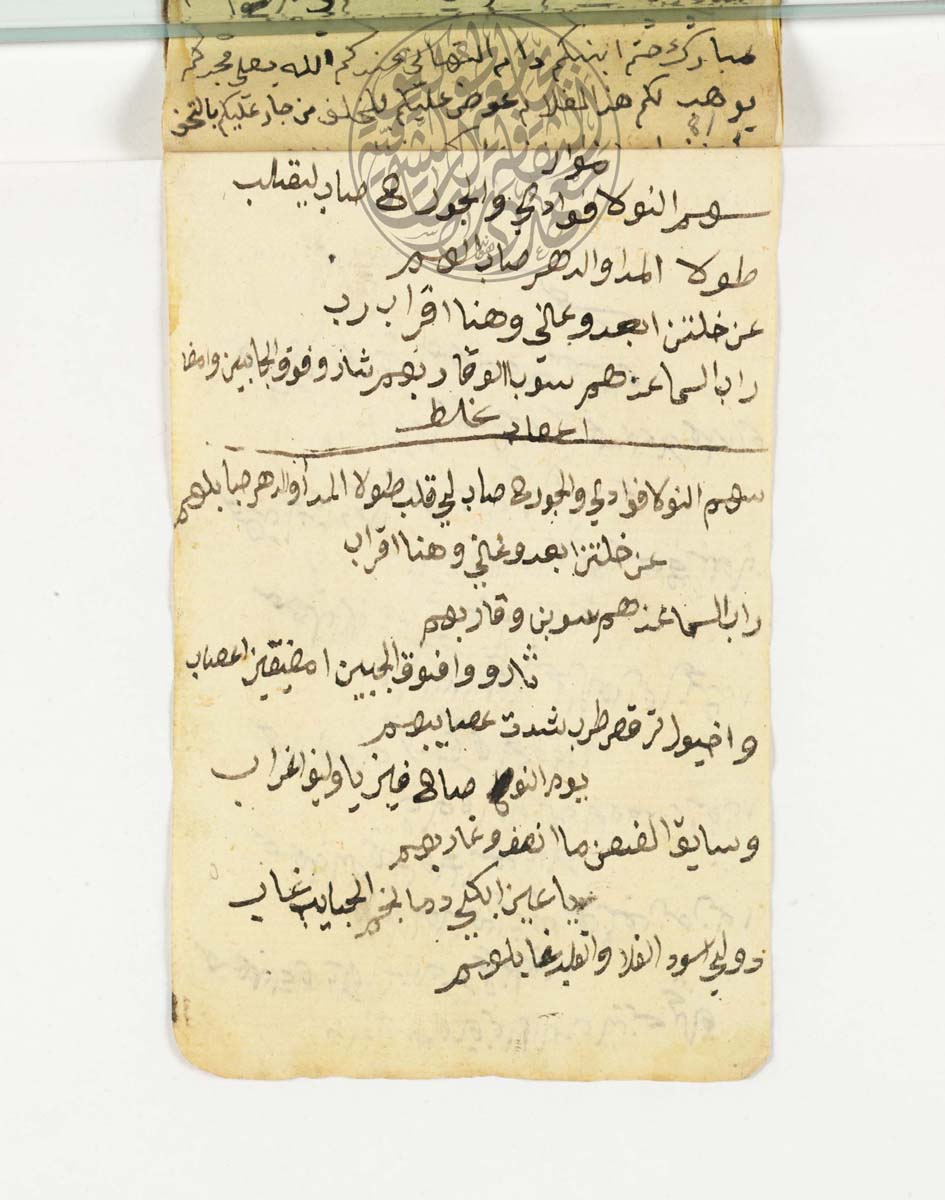 مبارك ختم ابنكم دام التهاني عندكم الله يعلي مجدكم
يوهب لكم هذا الغلام عوض عليكم للخلف من جاد عليكم بالتحف
موال
سهم النوا لا فوادي والجوارح صاب ليقلب
طولا المدا والدهر صاب الهم
عن خلتن ابعدوعاني وهنا اقراب رب
داب السما عندهم سوبا الوقار بهم شارو فوق الجابين وامضا
اعصاب غلط
سهم النوا لا فوادي والجوارح صاب لي قلب طولا المدا والدهر صابلهم
عن خلتن ابعدوعاني وهنا اقراب
داب السما عندهم سوبن وقاربهم
ثارو وا فنوق الجبين امضيقين اعصاب
واخيول ترقص طرب شدت عصايبهم
يوم النوا صاح فين يا وليف اغراب
وسايق الضعن ما انصف وغاربهم
يا عين ابكي دما لخم الحبايب غاب
دولي اسود الفلا والقلب غابلهم